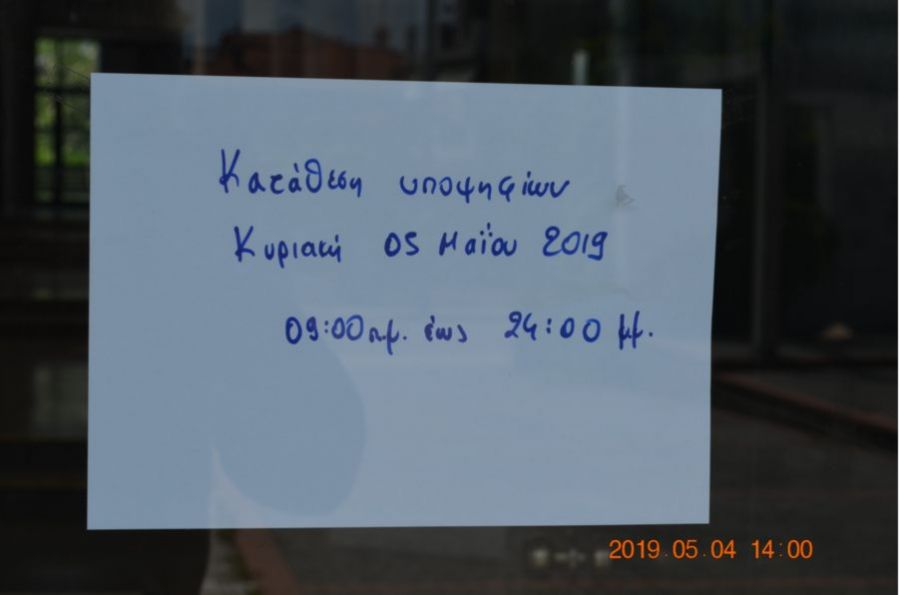 Κατάθεση υποψηφίων
Κυριακή 05 Μαΐου 2019
09:00 π.μ. έως 24:00 μμ.
2019.05.04 14:00